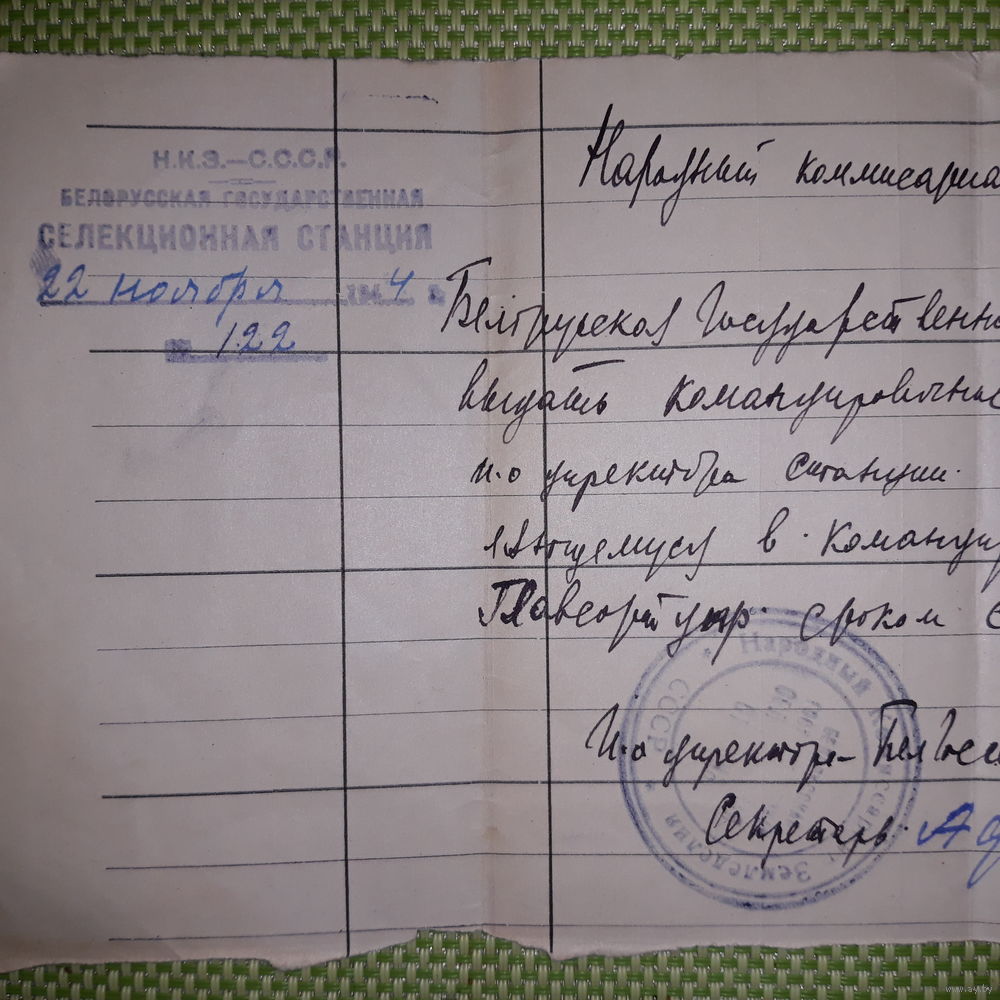 Н.К.З.—С.С.С.Р.
БЕЛОРУССКАЯ ГОСУДАРСТВЕННАЯ
СЕЛЕКЦИОННАЯ СТАНЦИЯ
22 ноября 194 4 г.
№ 122
Народный коммисариа
Белорусская Государственн
выдать командировочное
и.о директора станции.
в командир
Главсортупр. сроком с
И.о директора БелГосс
Секретарь
Народный Комиссариат Земледелия СССР
www.ay.by